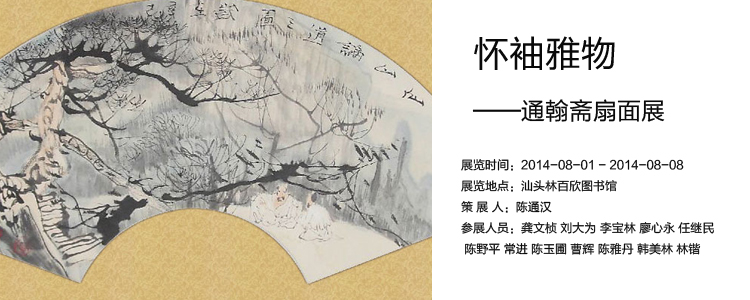 怀袖雅物
——通翰斋扇面展
展览时间：2014-08-01 - 2014-08-08
展览地点：汕头林百欣图书馆
策 展 人：陈通汉
参展人员：龚文桢 刘大为 李宝林 廖心永 任继民
陈野平 常进 陈玉圃 曹辉 陈雅丹 韩美林 林锴